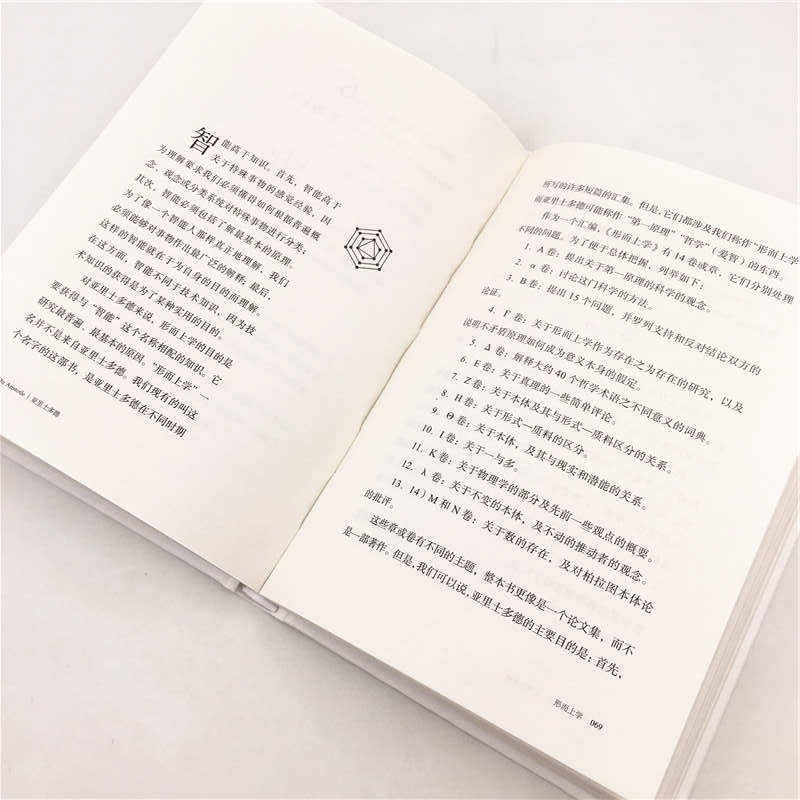 智能高于知识。首先，智能高于
关于特殊事物的感觉经验，因
为理解要求我们必须懂得如何根据普遍概
念、观念或分类系统对特殊事物进行分类；
其次，智能必须包括了解最基本的原理。
为了像一个智能人那样真正地理解，我们
必须能够对事物作出最广泛的解释；最后，
这样的智能就在于为自身的目的而理解。
在这方面，智能不同于技术知识，因为技
术知识的获得是为了某种实用的目的。
对亚里士多德来说，形而上学的目的是
要获得与“智能”这个名称相配的知识。它
研究最普遍、最基本的原因。“形而上学”一
名并不是来自亚里士多德。我们现有的叫这
个名字的这部书，是亚里士多德在不同时期
Aristotle | 亚里士多德
所写的许多短篇的汇集。但是，它们都涉及我们称作“形而上学
而亚里士多德可能称作“第一原理”“哲学”（爱智）的东西。
作为一个汇编，《形而上学》有 14 卷或章，它们分别处理
不同的问题。为了便于总体把握，列举如下：
1. A 卷：提出关于第一原理的科学的观念。
2. α 卷：讨论这门科学的方法。
3. B 卷：提出 15 个问题，并罗列支持和反对结论双方的
论证。
4. Γ 卷：关于形而上学作为存在之为存在的研究，以及
说明不矛盾原理如何成为意义本身的假定。
5. Δ 卷：解释大约 40 个哲学术语之不同意义的词典。
6. E 卷：关于真理的一些简单评论。
7. Z 卷：关于本体及其与形式—质料区分的关系。
8. H 卷：关于形式—质料的区分。
9. Θ 卷：关于本体，及其与现实和潜能的关系。
10. I 卷：关于一与多。
11. K 卷：关于物理学的部分及先前一些观点的概要。
12. λ 卷：关于不变的本体，及不动的推动者的观念。
13. 14）M 和 N 卷：关于数的存在，及对柏拉图本体论
的批评。
这些章或卷有不同的主题，整本书更像是一个论文集，而不
是一部著作。但是，我们可以说，亚里士多德的主要目的是：首先，
形而上学 069